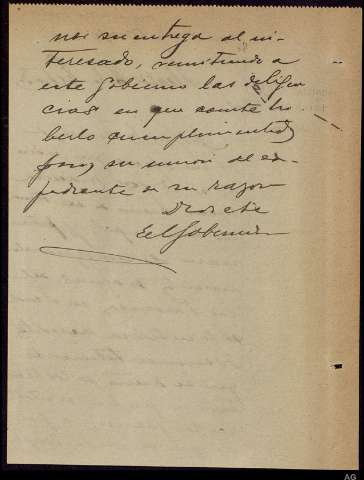 su entrega al in-
teresado, remitiendo a
este Gobierno las diligen
cias en que conste ha
berlo cumplimentado
para su union al ex-
pediente de su razon
Dios etc
El Gobernador
AG